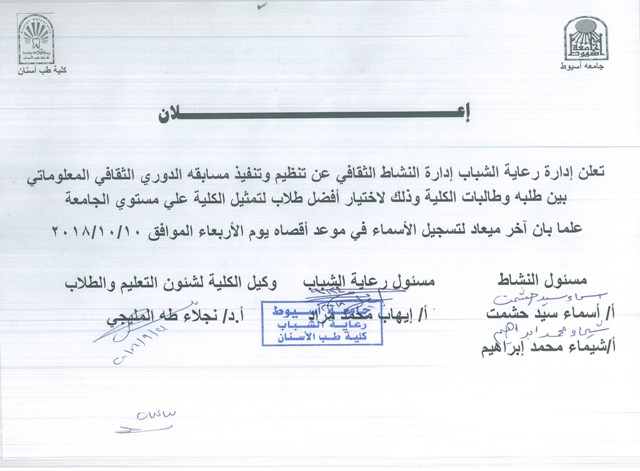 جامعه أسيوط
كلية طب أسنان
إعـــــــــلان
تعلن إدارة رعاية الشباب إدارة النشاط الثقافي عن تنظيم وتنفيذ مسابقه الدوري الثقافي المعلوماتي
بين طلبه وطالبات الكلية وذلك لاختيار أفضل طلاب لتمثيل الكلية علي مستوي الجامعة
علما بان آخر ميعاد لتسجيل الأسماء في موعد أقصاه يوم الأربعاء الموافق ٢٠١٨/١٠/١٠
مسئول النشاط مسئول رعاية الشباب وكيل الكلية لشئون التعليم والطلاب
أسماء سيد حشمت
أ/ أسماء سيد حشمت أ/ إيهاب محمد مراد أ.د/ نجلاء طه المليجي
شيماء محمد ابراهيم
أ/شيماء محمد إبراهيم
جامعة أسيوط
رعاية الشباب
كلية طب الأسنان